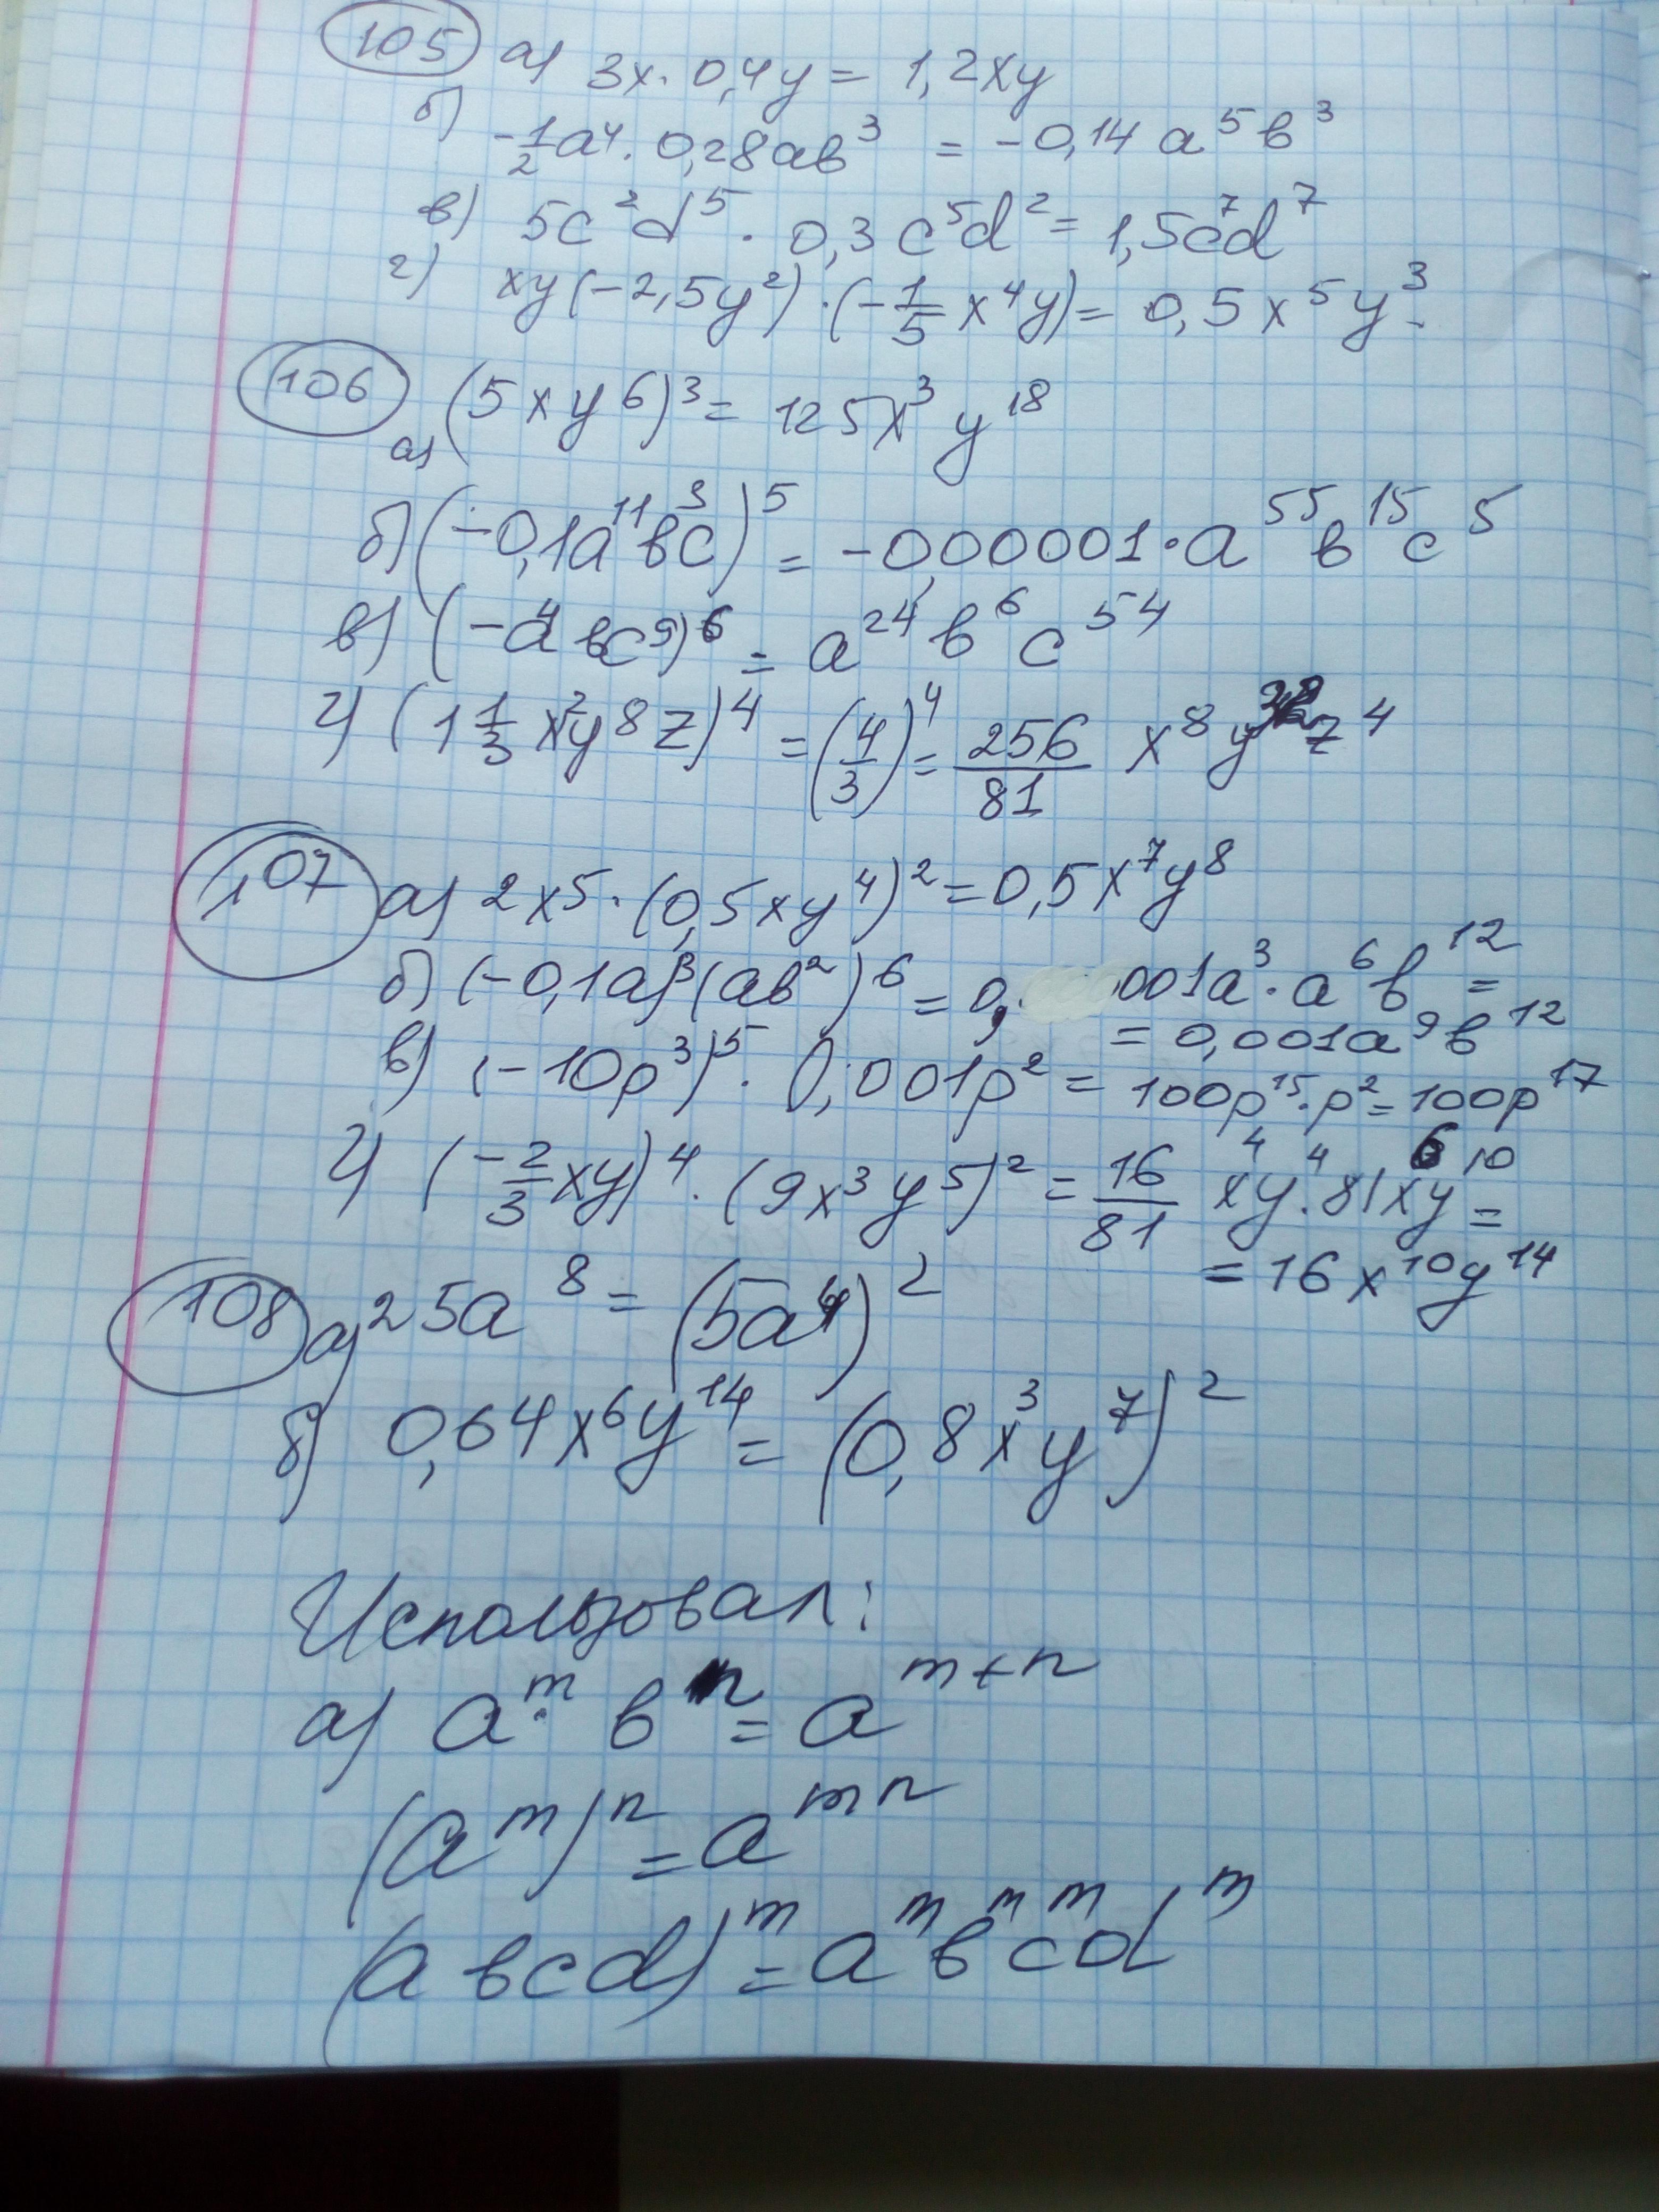 105 а) 3x · 0,4y = 1,2xy
б) -1/2a⁴ · 0,28ab³ = -0,14 a⁵b³
в) 5c²d⁵ · 0,3c⁵d² = 1,5c⁷d⁷
г) xy(-2,5y²) · (-1/5 x⁴y) = 0,5x⁵y³
106 а) (5xy⁶)³ = 125x³y¹⁸
б) (-0,1a¹¹b³c)⁵ = -0,00001 · a⁵⁵b¹⁵c⁵
в) (-a⁴bc⁹)⁶ = a²⁴b⁶c⁵⁴
г) (1 1/3 x²y⁸z)⁴ = (4/3)⁴ = 256/81 x⁸y z⁴
107 а) 2x⁵ · (0,5xy⁴)² = 0,5x⁷y⁸
б) (-0,1a)³(ab²)⁶ = 0,001a³ · a⁶b¹² =
= 0,001a⁹b¹²
в) (-10p³)⁵ · 0,001p² = 100p¹⁵ · p² = 100p¹⁷
г) (-2/3xy)⁴ · (9x³y⁵)² = 16/81 x⁴y⁴ · 81x⁶y¹⁰ =
= 16x¹⁰y¹⁴
108 а) 25a⁸ = (5a⁴)²
б) 0,64x⁶y¹⁴ = (0,8x³y⁷)²
Использовал:
а) aᵐ · bⁿ = aᵐ⁺ⁿ
(aᵐ)ⁿ = aᵐⁿ
(abcd)ᵐ = aᵐbᵐcᵐdᵐ